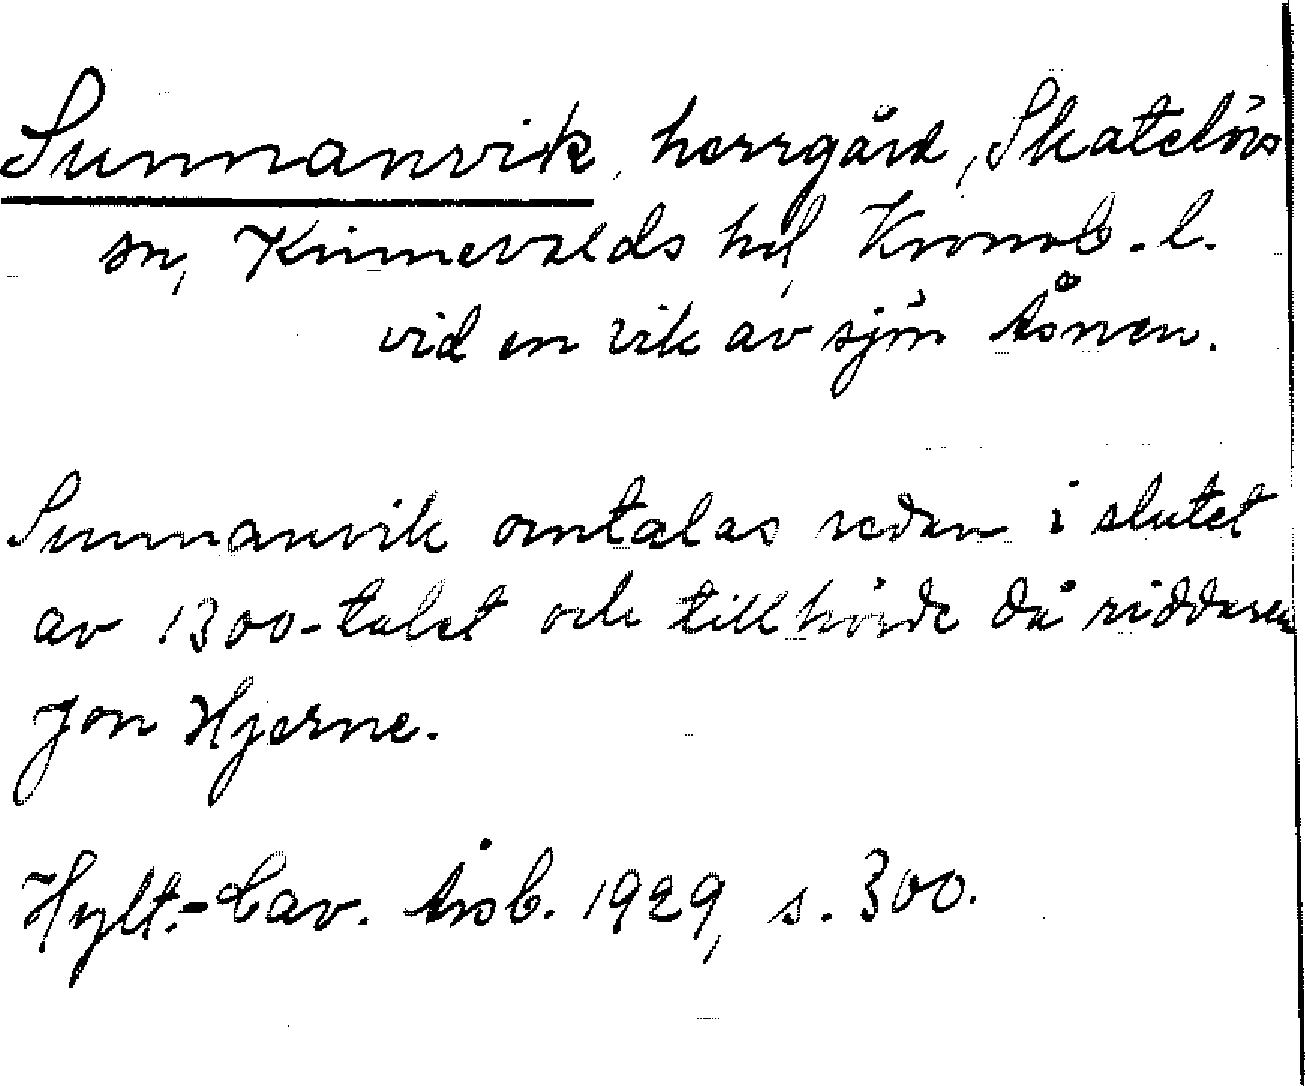 Sunnanvik, herrgård, Skatelövs
sn, Kinnevalds hd, Kronob. l.
vid en vik av sjön Åsnen.
Sunnanvik omtalas redan i slutet
av 1300-talet och tillhörde då riddaren
Jon Hjerne.
Hylt.-Cav. Årsb. 1929, s. 300.